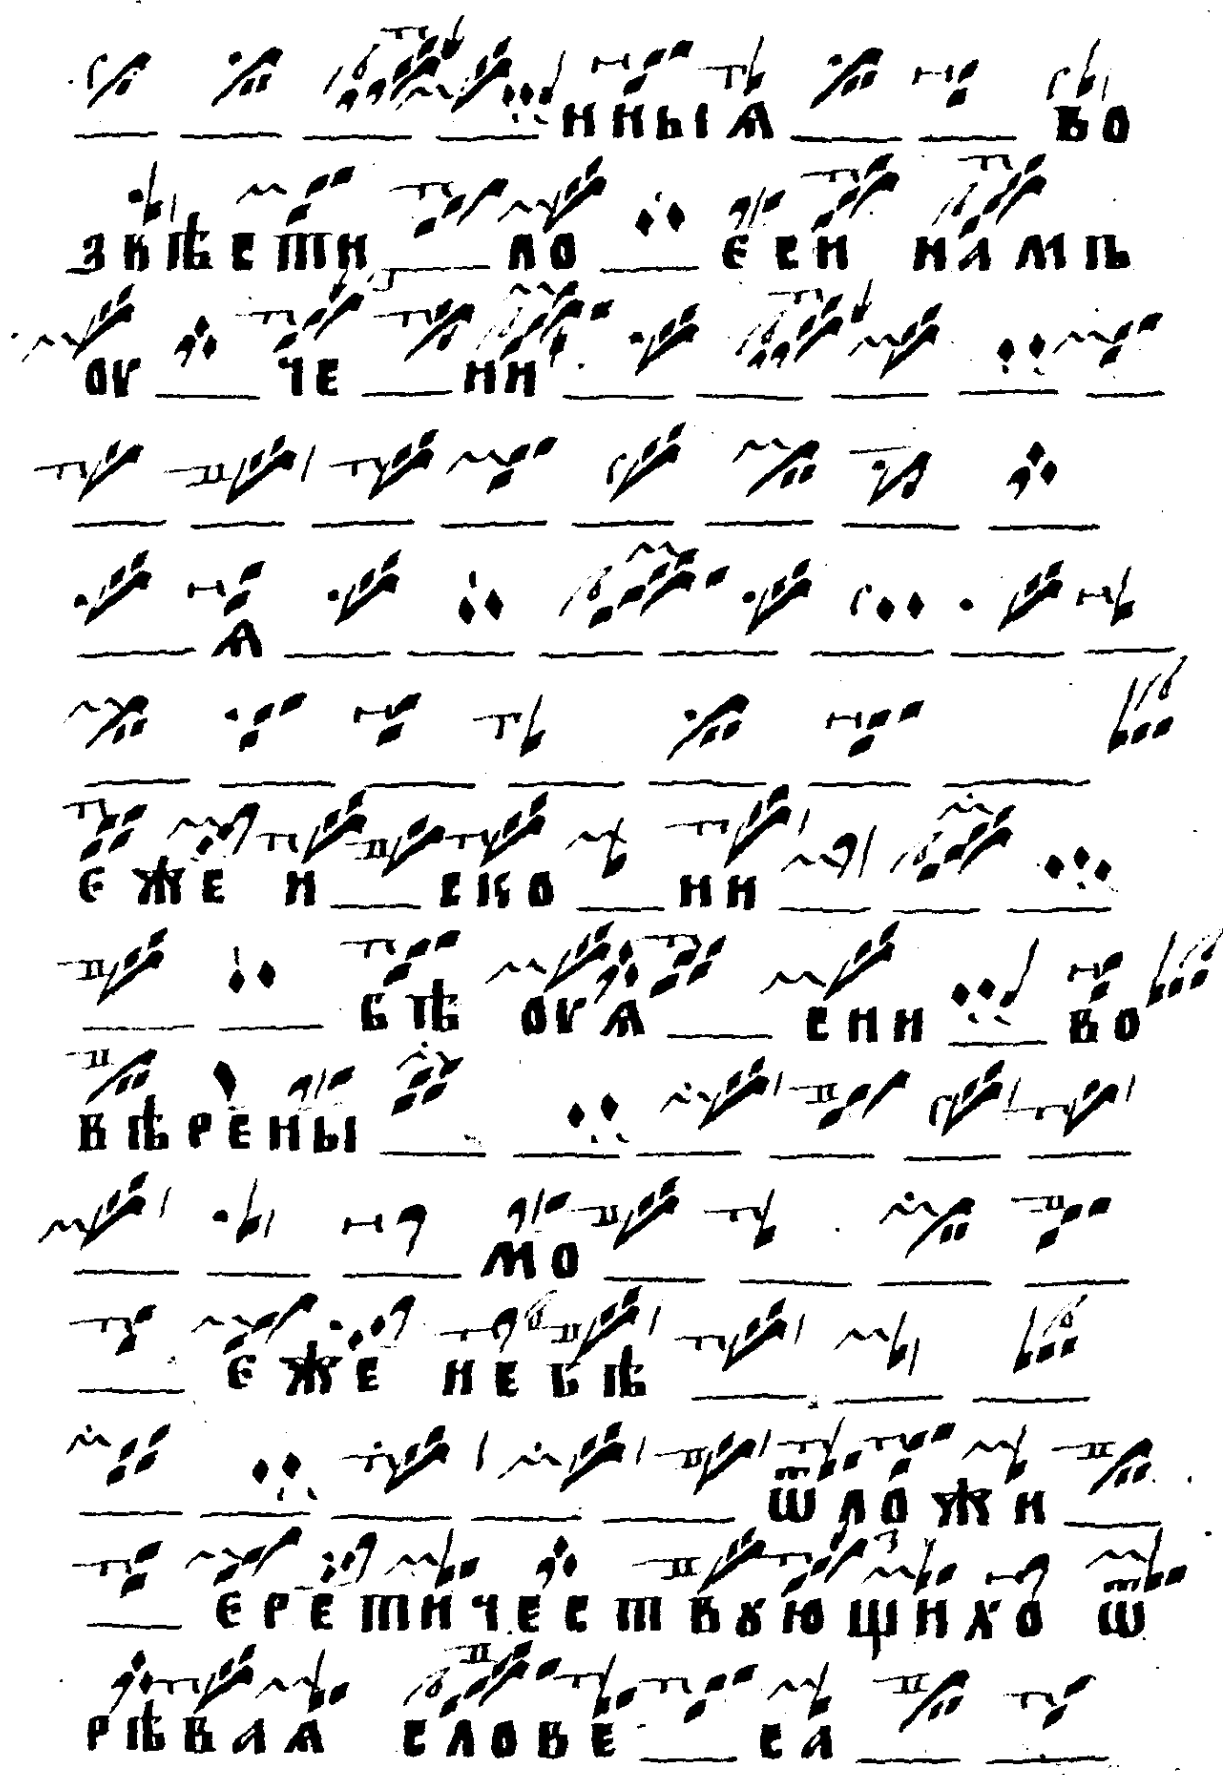 нныꙗ во
звѣсти ло єси намъ
оу че ни
ѧ
єже и ско ни
бѣ оуѧ сни во
вѣрены
мо
єже небѣ
ѿложи
єретичествꙋющихо ѿ
рѣваѧ слове са